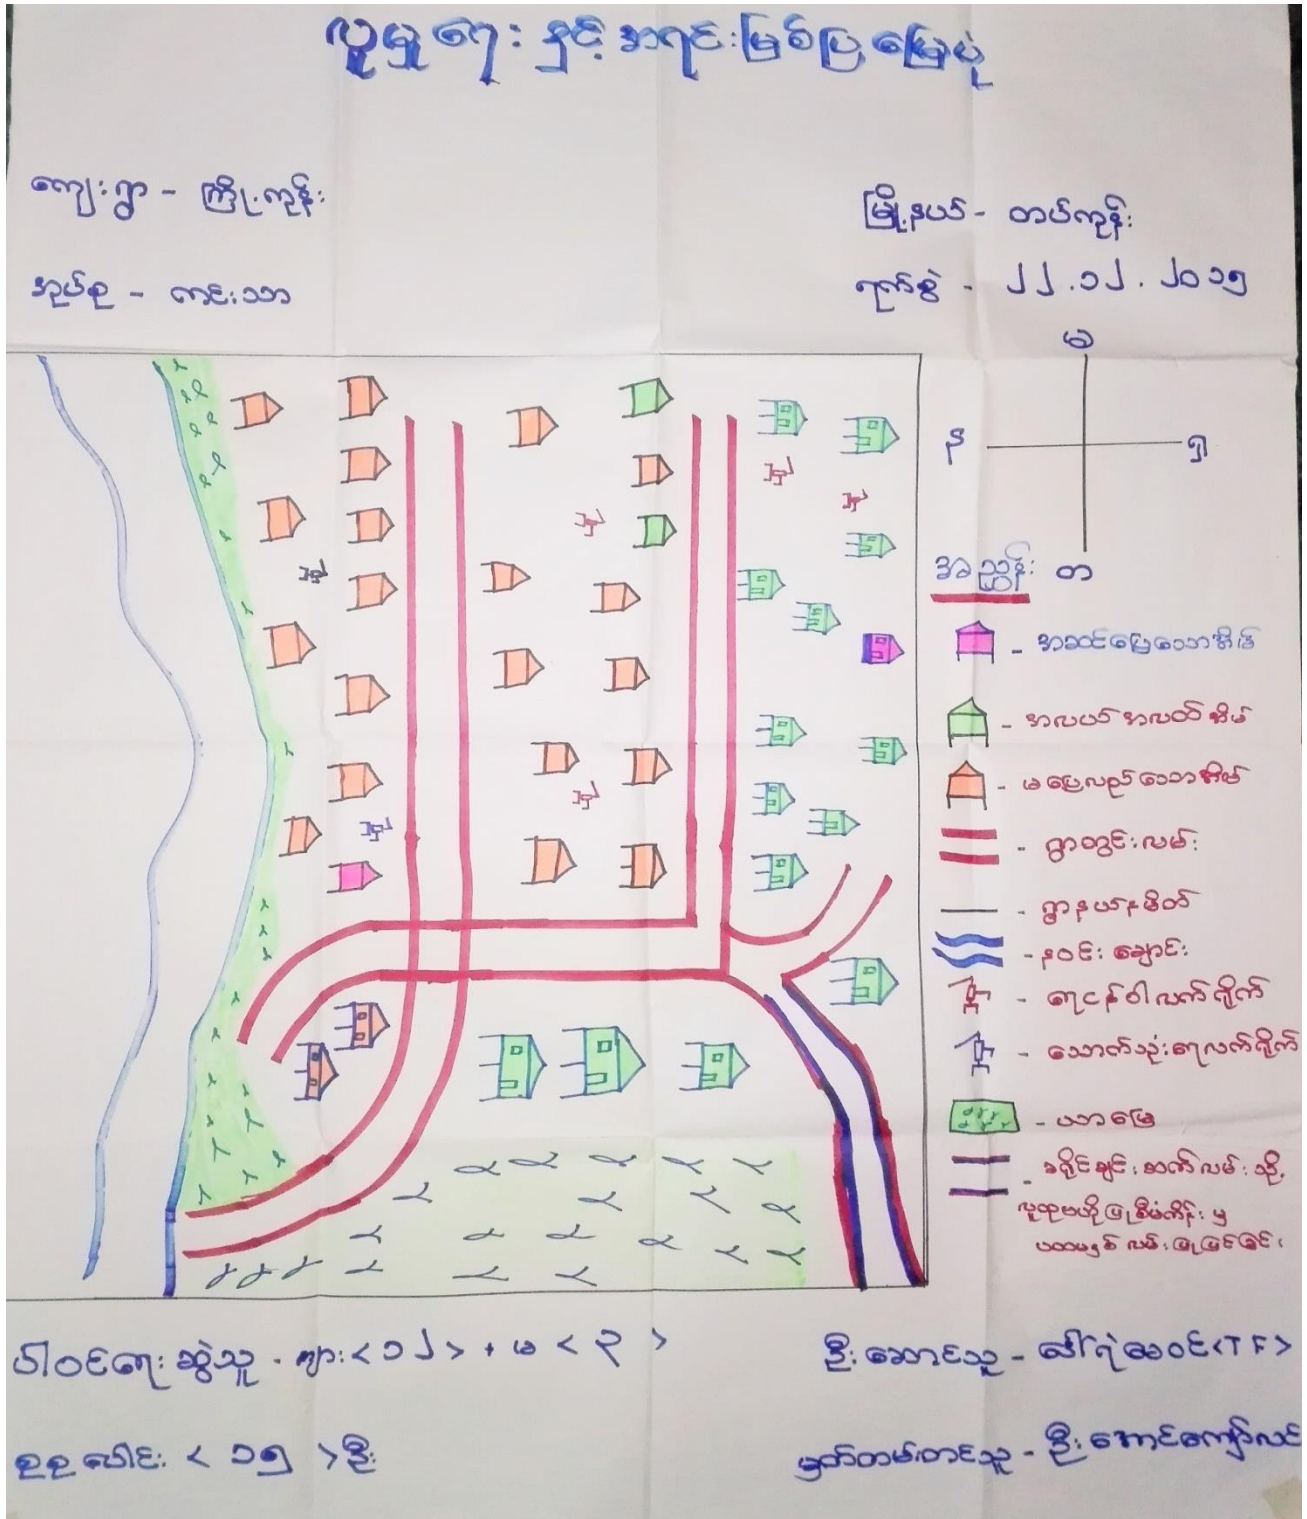 လူမှုရေး နှင့် အရင်းမြစ်ပြမြေပုံ
ကျေးရွာ - ကြို့ကုန်း
မြို့နယ် - တပ်ကုန်း
အုပ်စု - ကင်းသာ
ရက်စွဲ - ၂၂.၁၂.၂၀၁၅
မ
န
ရှ
တ
အညွှန်း
- အဆင်ပြေသောအိမ်
- အလယ်အလတ်အိမ်
- မပြေလည်သောအိမ်
- ရွာတွင်းလမ်း
- ရွာနယ်နမိတ်
- နဝင်းချောင်း
- ရေငန်ဝါလက်ရိုက်
- သောက်သုံးရေလက်ရိုက်
- ယာမြေ
- ခရိုင်ချင်းဆက်လမ်းသို့
လူထုဗဟိုပြုစီမံကိန်းမှ
ပထမနှစ်လမ်းပြုပြင်ခြင်း
ပါဝင်ရေးဆွဲသူ - ကျား<၁၂> + မ <၃>
ဦးဆောင်သူ - ဒေါ်ရဲမေဝင်<TF>
စုစုပေါင်း <၁၅>ဦး
မှတ်တမ်းတင်သူ - ဦးအောင်ကျော်လင်